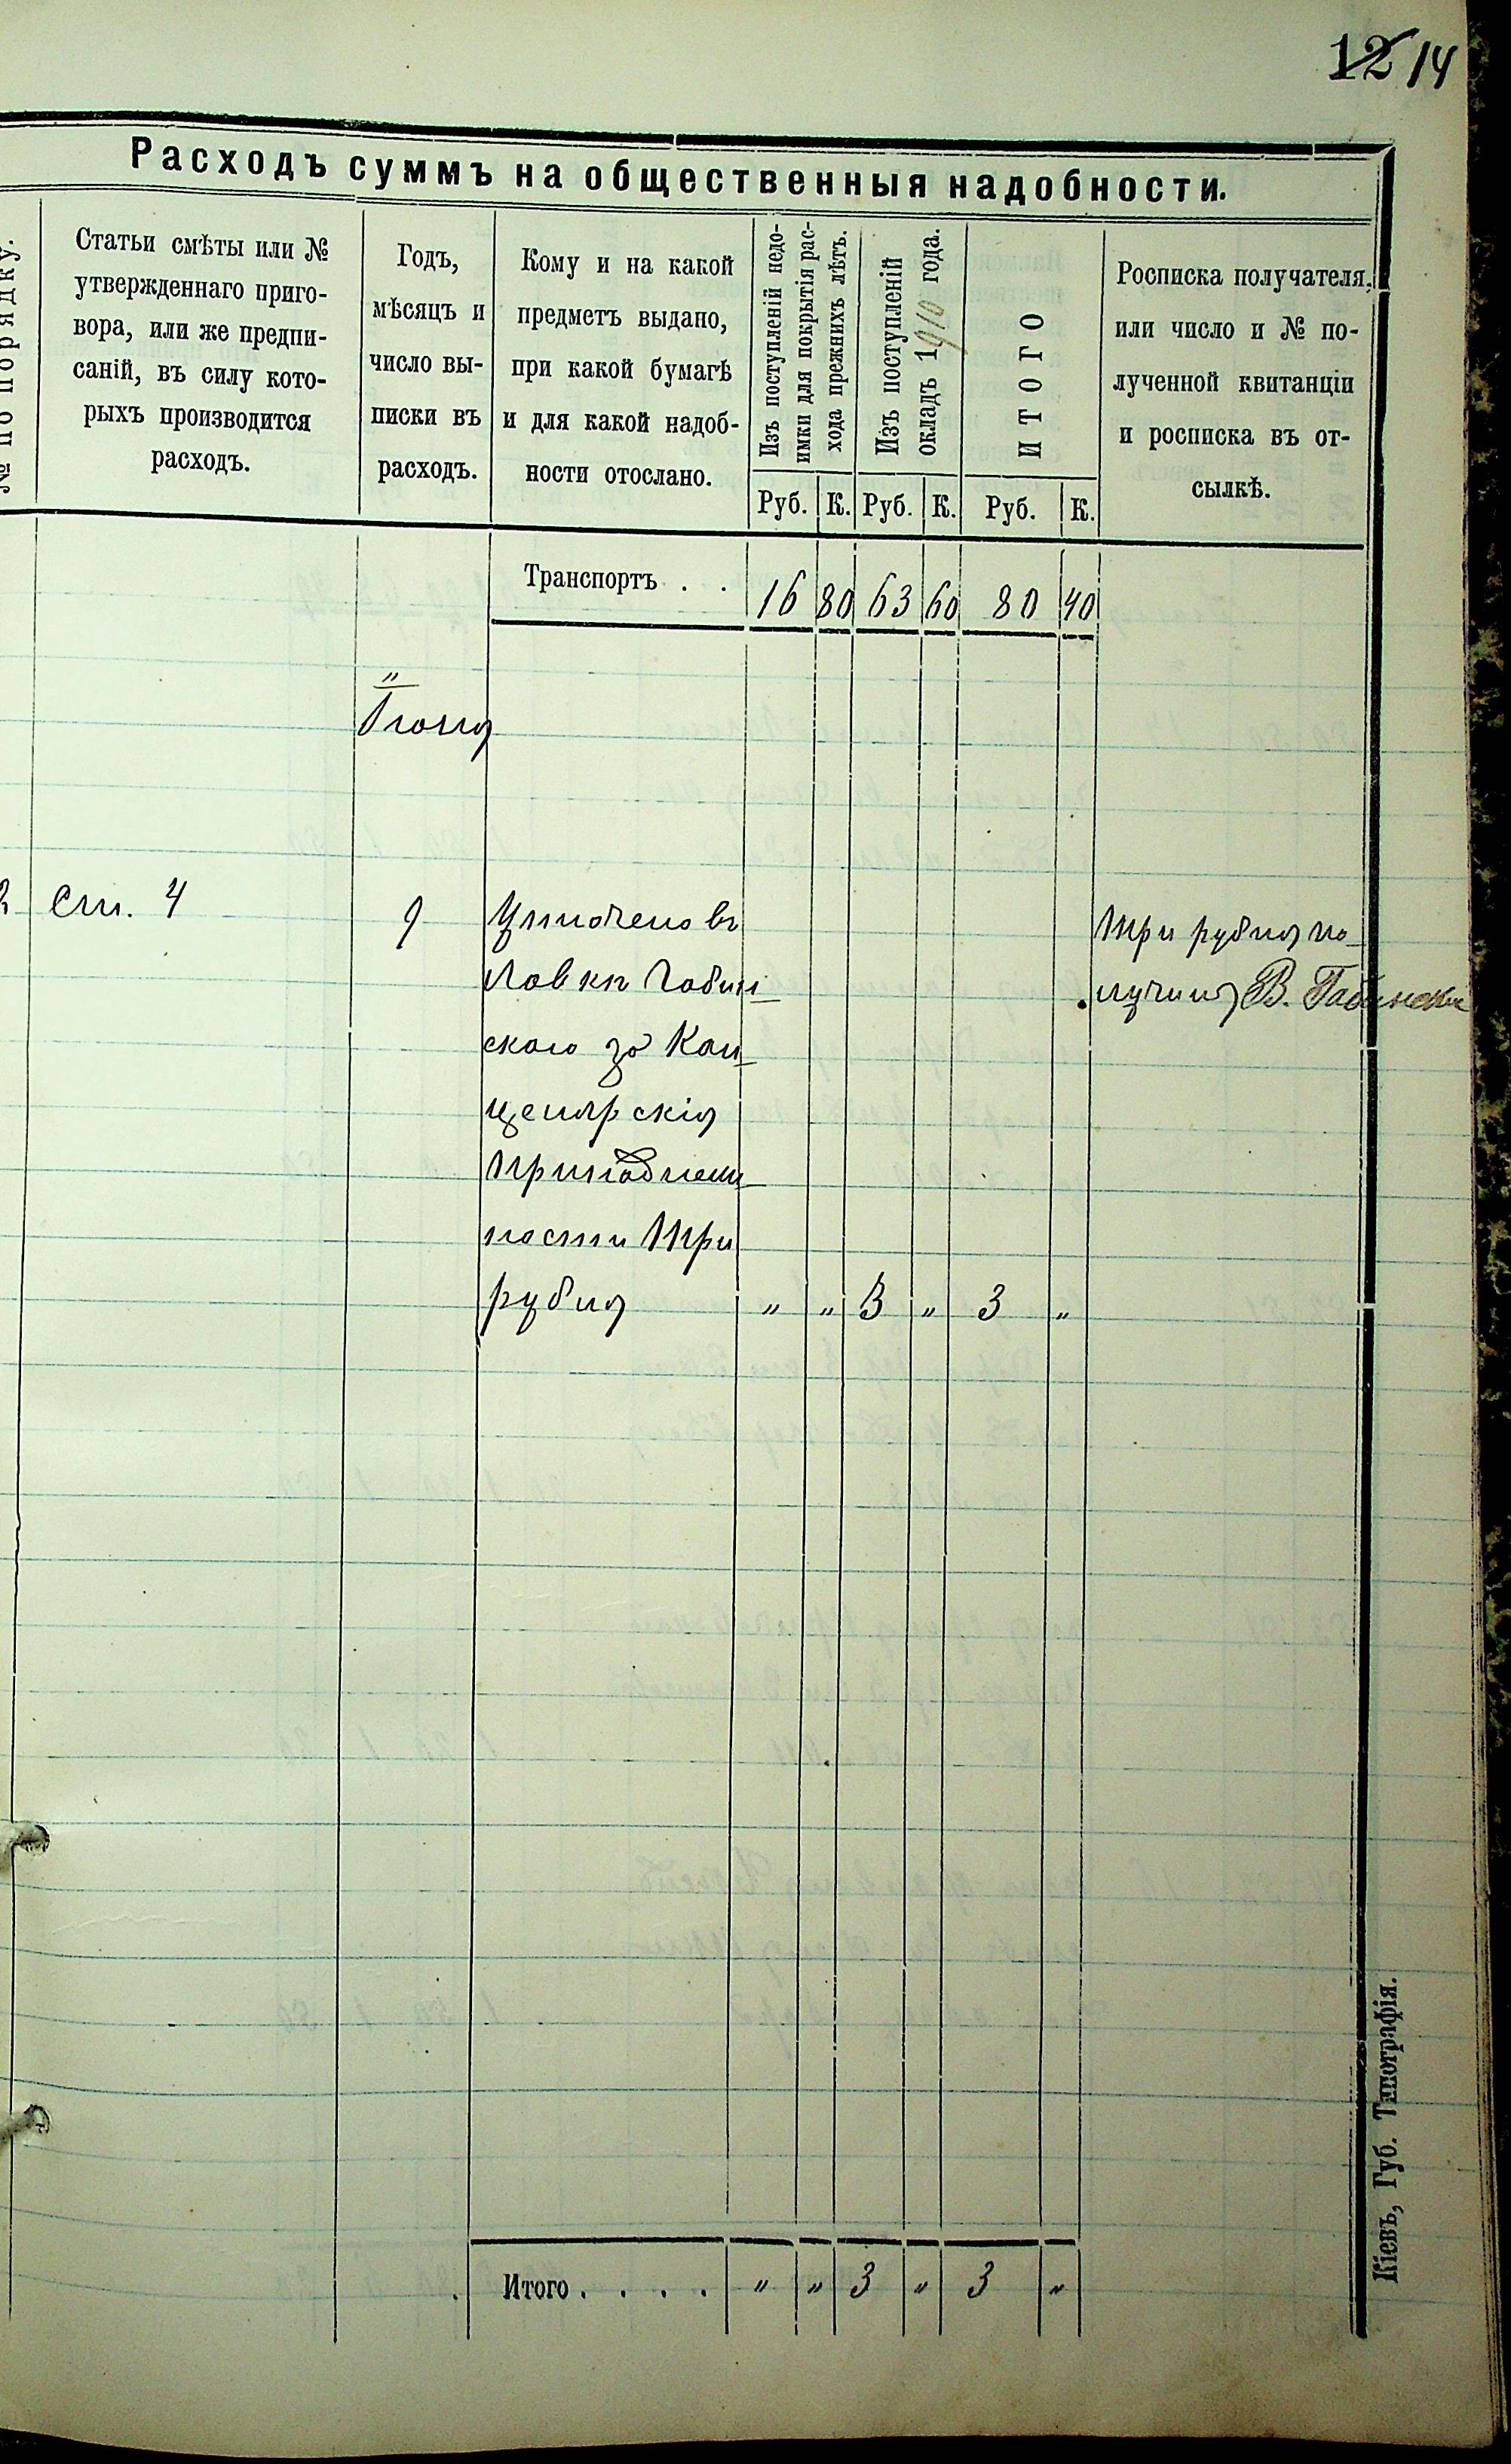 12 14
Расходъ суммъ на общественныя надобности.
№ по порядку.
Статьи смѣты или №
утвержденнаго приго-
вора, или же предпи-
саній, въ силу кото-
рыхъ производится
расходъ.
Годъ,
мѣсяцъ и
число вы-
писки въ
расходъ.
Кому и на какой
предметъ выдано,
при какой бумагѣ
и для какой надоб-
ности отослано.
Изъ поступленій недо-
имки для покрытія рас-
хода прежнихъ лѣтъ.
Изъ поступленій
окладъ 1910 года.
ИТОГО
Росписка получателя,
или число и № по-
лученной квитанціи
и росписка въ от-
сылкѣ.
Руб. К. Руб. К. Руб. К.
Транспортъ . . 16 80 63 60 80 40
"
Іюля
Ст. 4 9 Уплочено въ
лавки Габин-
скаго за Кан-
целярскія
принадлеж-
ности три
рубля " " 3 " 3 "
Три рубля по-
лучилъ В. Габинскій
Итого . . . . " " 3 " 3 "
Кіевъ, Губ. Типографія.